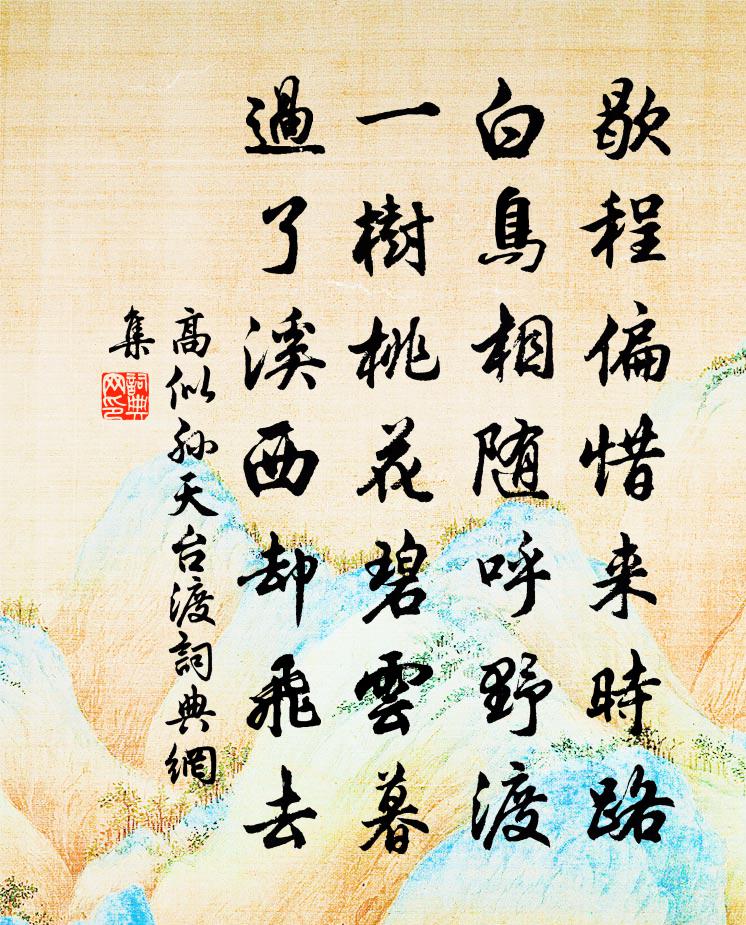 歇程偏惜来時路
白鳥相随呼野渡
一樹桃花碧雲暮
過了溪西却飛去
高似孙天台渡詞典網
集
詞典
网印